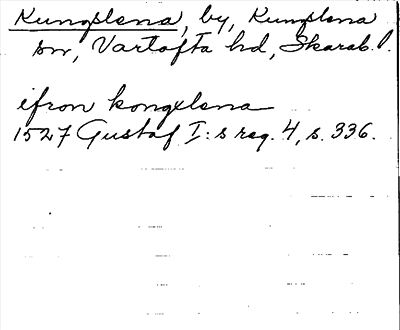 Kungslena, by, Kungslena
sn, Vartofta hd, Skarab. l.
ifron kongxlena
1527 Gustaf I:s reg. 4, s. 336.